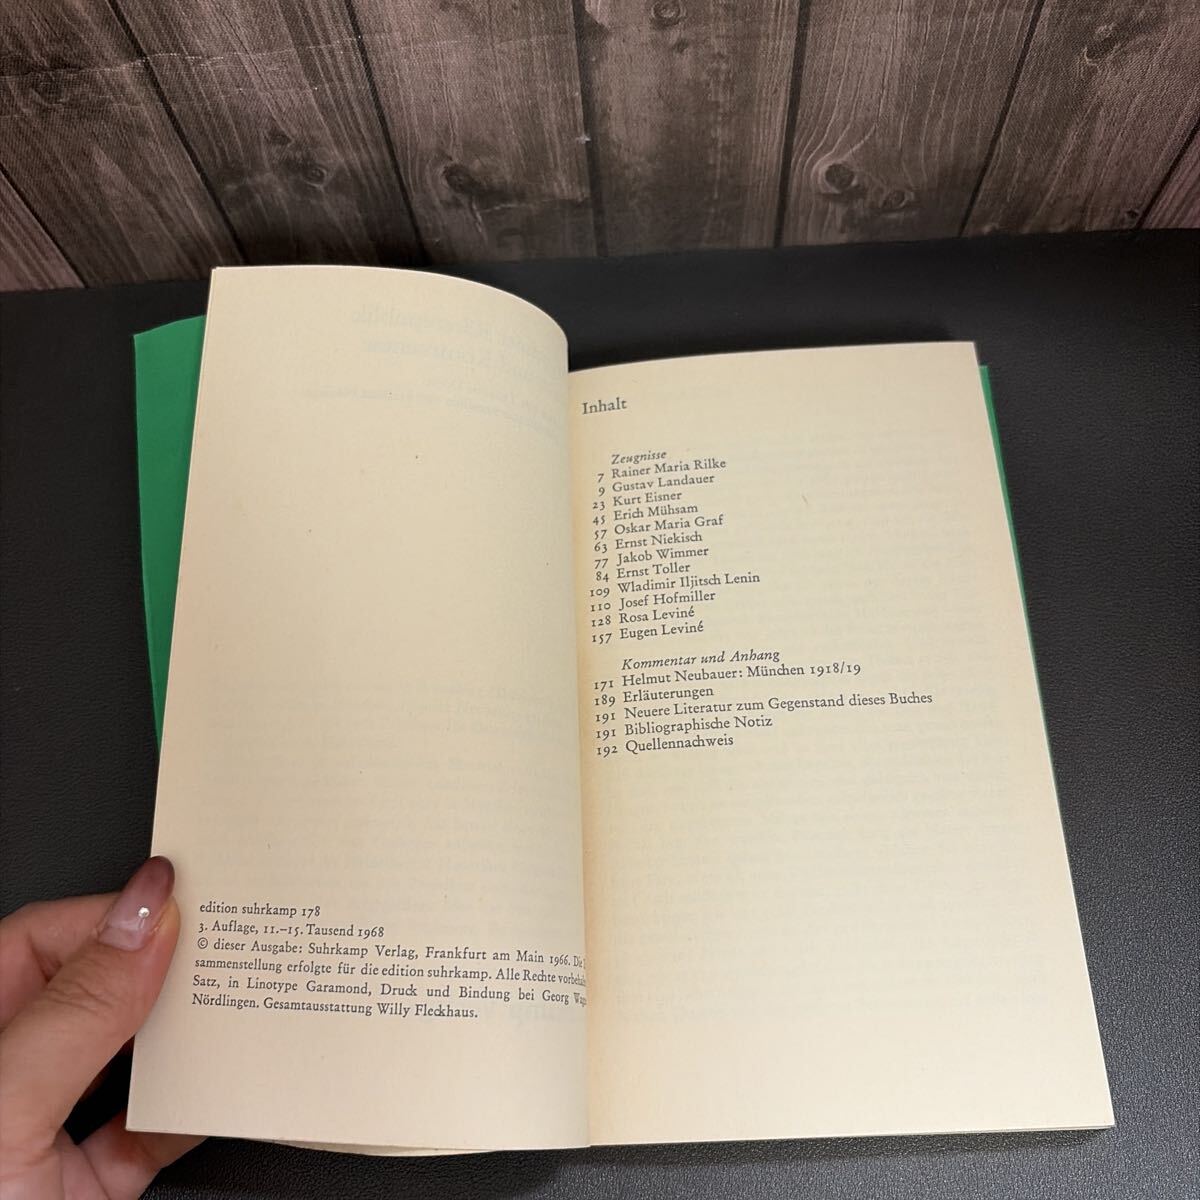 edition suhrkamp 178
3. Auflage, 11.–15. Tausend 1968
© dieser Ausgabe: Suhrkamp Verlag, Frankfurt am Main 1966. Die
sammenstellung erfolgte für die edition suhrkamp. Alle Rechte
Satz, in Linotype Garamond, Druck und Bindung bei Georg
Nördlingen. Gesamtausstattung Willy Fleckhaus.
Inhalt
Zeugnisse
7 Rainer Maria Rilke
9 Gustav Landauer
23 Kurt Eisner
45 Erich Mühsam
57 Oskar Maria Graf
63 Ernst Niekisch
77 Jakob Wimmer
84 Ernst Toller
109 Wladimir Iljitsch Lenin
110 Josef Hofmiller
128 Rosa Leviné
157 Eugen Leviné
Kommentar und Anhang
171 Helmut Neubauer: München 1918/19
189 Erläuterungen
191 Neuere Literatur zum Gegenstand dieses Buches
191 Bibliographische Notiz
192 Quellennachweis